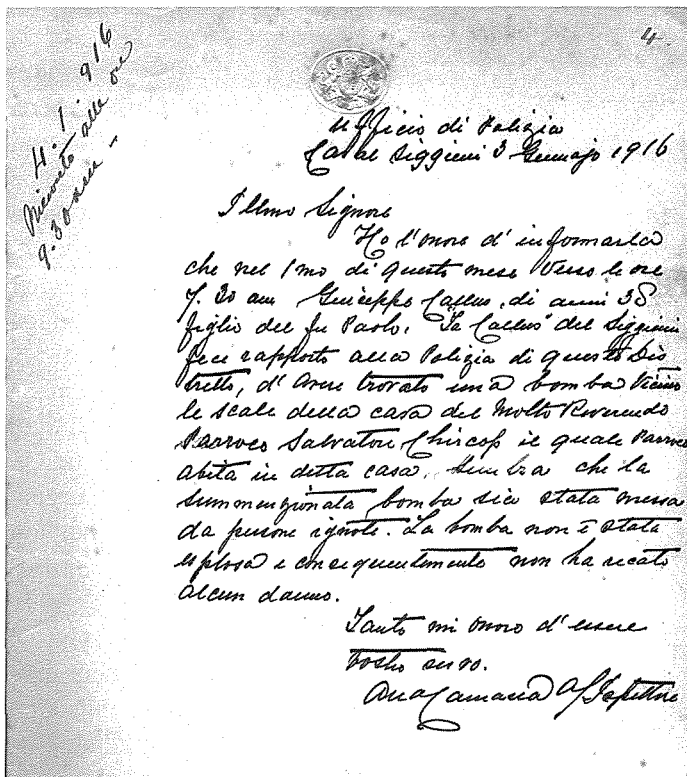 4
4. 1. 916
Ricevuta alle ore
9.30 a.m.
Ufficio di Polizia
Casal Siggieui 3 Gennajo 1916
Illmo Signore
Ho l'onore d'informarla
che nel 1mo di questo mese verso le ore
7.30 am Guiseppe Callus, di anni 38
figlio del fu Paolo, "Ta Callus" del Siggieui
fece rapporto alla Polizia di questo Dis
tretto, d'avere trovato una bomba vicino
le scale della casa del Molto Reverendo
Parroco Salvatore Chircop il quale Parroco
abita in detta casa. Sembra che la
summenzionata bomba sia stata messa
da persone ignote. La bomba non è stata
esplosa e conseguentemente non ha recato
alcun danno.
Tanto mi onoro d'essere
Vostro servo.
Camaria A/Ispettore